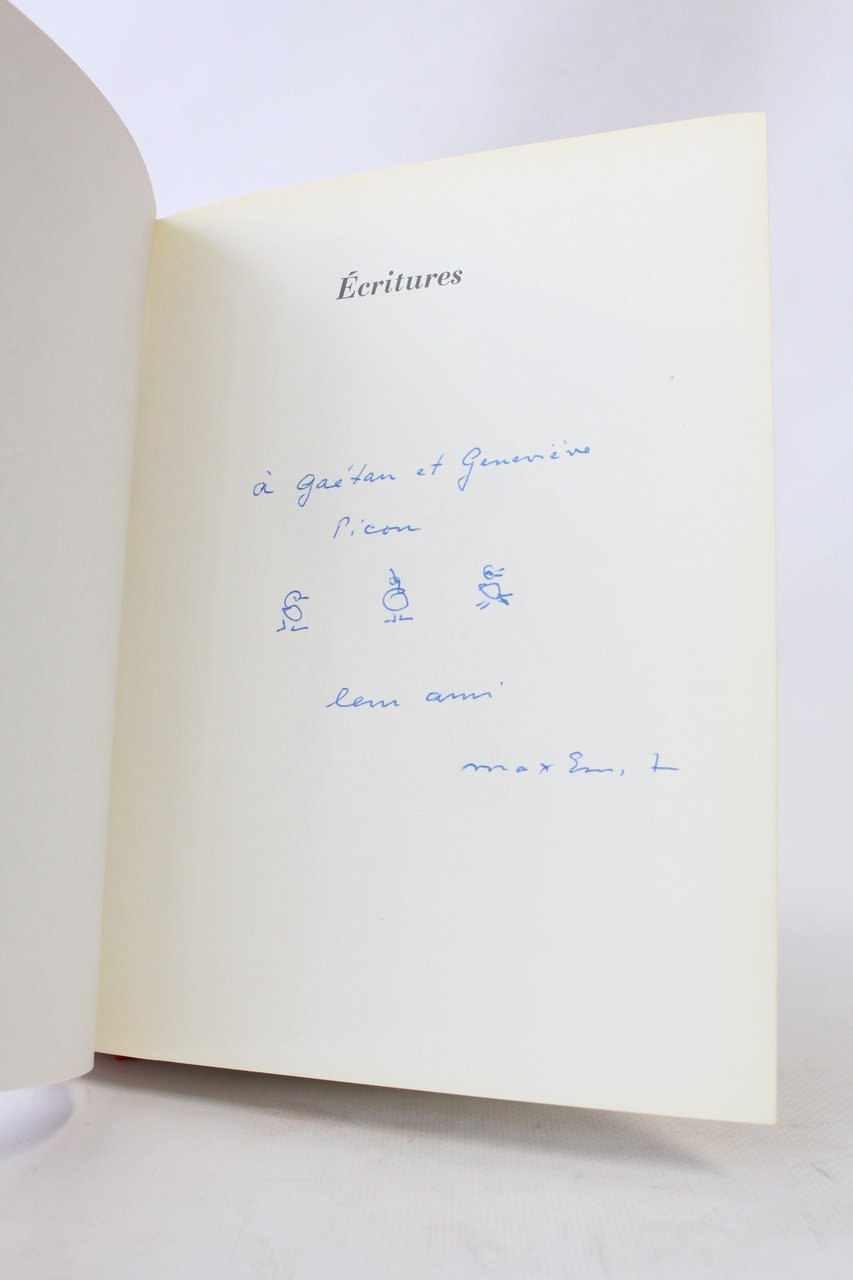 Écritures
à Gaétan et Geneviève
Picon
leur ami
max Ernst